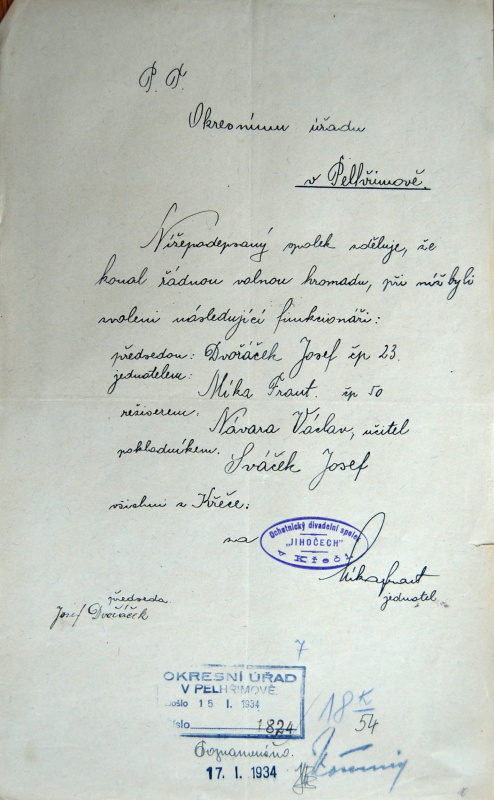 P. T.
Okresnímu úřadu
v Pelhřimově.
Nížepodepsaný spolek sděluje, že
konal řádnou valnou hromadu, při níž byli
zvoleni následující funkcionáři:
předsedou: Dvořáček Josef čp 23.
jednatelem: Míka Frant. čp 50
režiserem: Návara Václav, učitel
pokladníkem: Sváček Josef
všichni z Křeče:
za
Ochotnický divadelní spolek
„JIHOČECH"
v Křeči
Míka Frant
jednatel
předseda
Josef Dvořáček
7
OKRESNÍ ÚŘAD
V PELHŘIMOVĚ
Došlo 15 I. 1934
Číslo 1824
18 K/54
Poznamenáno.
17. I. 1934